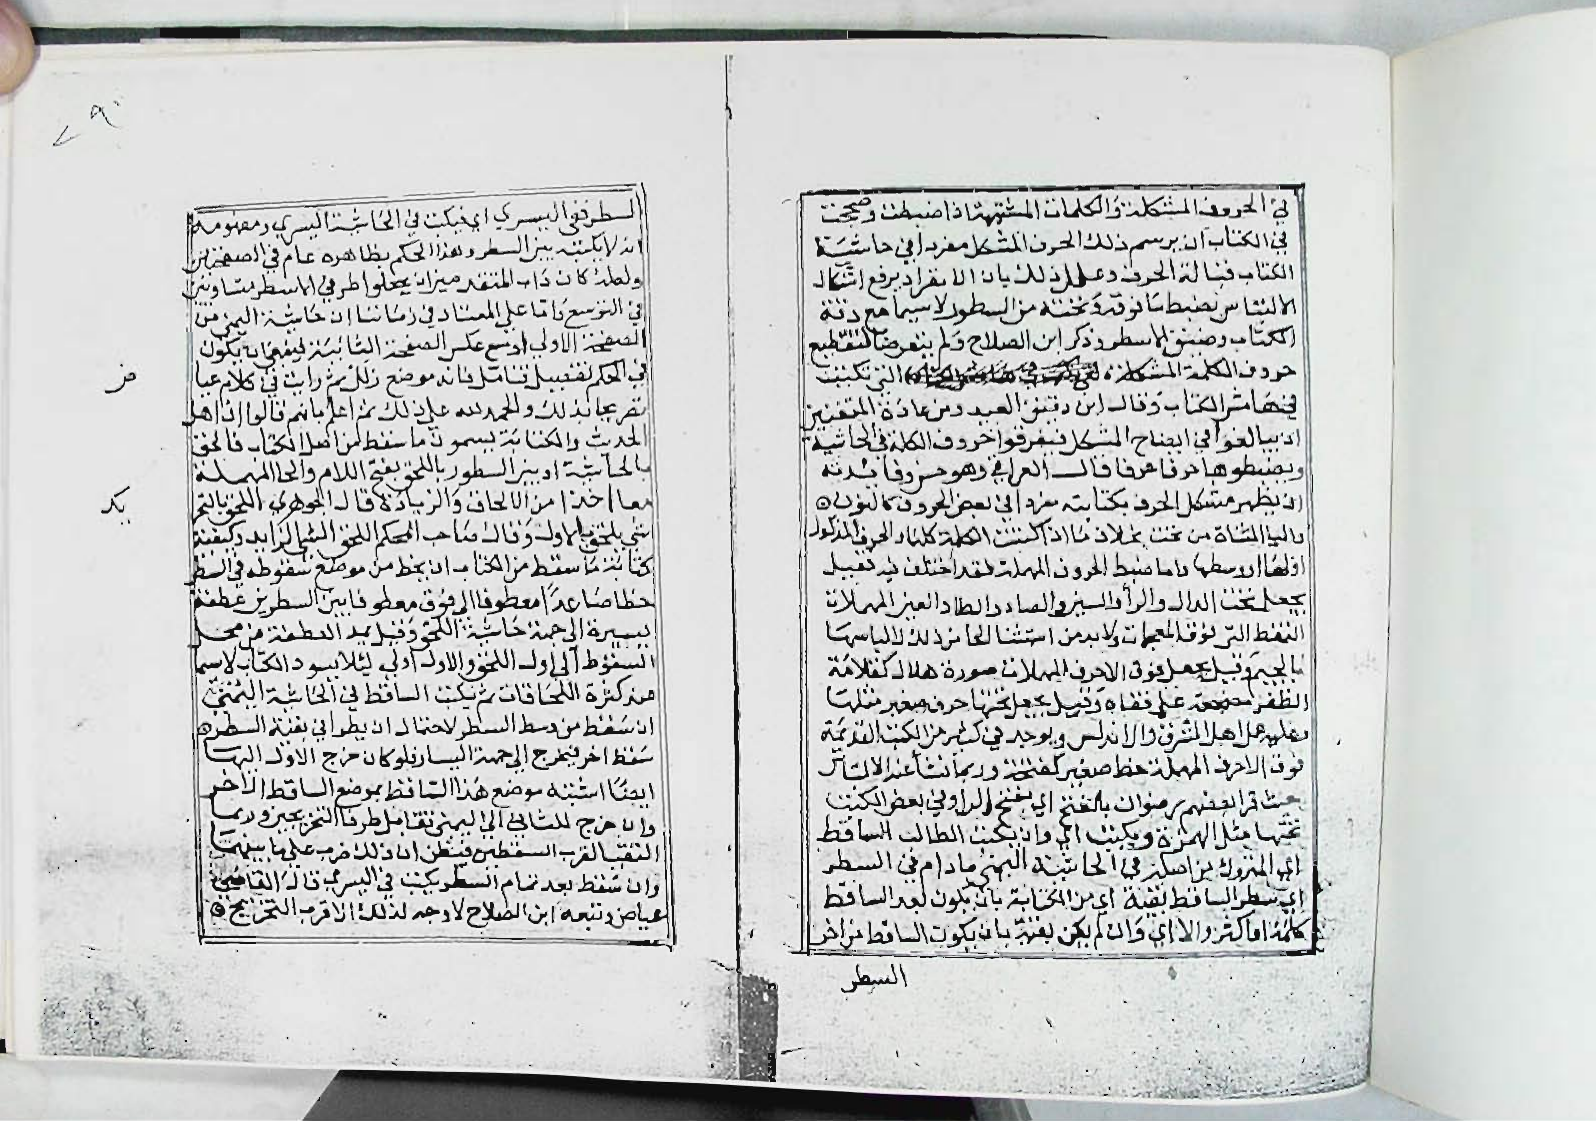 في الحروف المشكلة والكلمات المشتبهة اذا ضبطت وصححت
في الكتاب ان يرسم ذلك الحرف المشكل مفردا في حاشية
الكتاب قبالة الحرف وعلل ذلك بان الانفراد يرفع اشكال
الالتباس بضبط ما فوقه وتحته من السطور لا سيما مع دقة
الكتاب وضيق الاسطر وذكر ابن الصلاح ولم يتعرضا لتقطيع
حروف الكلمة المشكلة التي تكتب
في هامش الكتاب وقال ابن دقيق العيد ومن عادة المتقنين
ان يبالغوا في ايضاح المشكل فيفرقوا حروف الكلمة في الحاشية
ويضبطوها حرفا حرفا قال العراقي وهو حسن وفائدته
ان يظهر مشكل الحرف بكتابته مفردا في بعض الحروف كالنون
واليا المثناة من تحت بخلاف ما اذا كتبت الكلمة كلها والحرف المذكور
اولها او وسطها واما ضبط الحروف المهملة فقد اختلف فيه فقيل
يجعل تحت الدال والرا والسين والصاد والطا والعين المهملات
النقط التي فوق المعجمات ولا بد من استثنا الحا من ذلك لالباسها
بالجيم وقيل يجعل فوق الاحرف المهملات صورة هلال كقلامة
الظفر مضجعة على قفاه وقيل يجعل تحتها حرف صغير مثلها
وعليه عمل اهل المشرق والاندلس ويوجد في كثير من الكتب القديمة
فوق الاحرف المهملة خط صغير كفتحة وربما نشأ عنه الالتباس
حيث قرا بعضهم رضوان بالفتح اي بفتح الرا وفي بعض الكتب
تحتها مثل الهمزة ويكتب اي وان يكتب الطالب الساقط
اي المتروك من اصله في الحاشية اليمنى ما دام في السطر
اي سطر الساقط بقية اي من الكتابة بان يكون بعد الساقط
كلمة او اكثر والا اي وان لم يكن بقية بان يكون الساقط من اخر
السطر
السطر ففي اليسرى اي فيكتب في الحاشية اليسرى ومفهومه
انه لا يكتبه بين السطر وهذا الحكم بظاهره عام في الصفحتين
ولعله كان داب المتقدمين ان يجعلوا طرفي الاسطر متساويين
في التوسع واما على المعتاد في زماننا ان حاشية اليمنى من
الصفحة الاولى اوسع عكس الصفحة الثانية فينبغي ان يكون
في الحكم تفصيل تامل فانه موضع زلل ثم رايت في كلام عيا
تصريحا بذلك والحمد لله على ذلك ثم اعلم بانهم قالوا ان اهل
الحديث والكتابة يسمون ما سقط من اصل الكتاب فالحق
بالحاشية او بين السطور باللحق بفتح اللام والحا المهملة
معا اخذا من الالحاق والزيادة قال الجوهري اللحق بالتحر
شي يلحق بالاول وقال صاحب المحكم اللحق الشي الزايد وكيفية
كتابة ما سقط من الكتاب ان يخط من موضع سقوطه في السطر
خطا صاعدا معطوفا الى فوق معطوفا بين السطرين عطفة
يسيرة الى جهة حاشية اللحق وقيل يمد العطفة من محل
السقوط الى اول اللحق والاول اولى لئلا يسود الكتاب لا سيما
عند كثرة اللحاقات ثم يكتب الساقط في الحاشية اليمنى
ان سقط من وسط السطر لاحتمال ان يطرا في بقية السطر
سقط اخر فيخرج الى جهة اليسار فلو كان خرج الاول اليها
ايضا اشتبه موضع هذا الساقط بموضع الساقط الاخر
وان خرج للثاني الى اليمنى تقابل طرفا التخريجين وربما
التقيا لقرب السقطين فيظن ان ذلك ضرب على ما بينهما
وان سقط بعد تمام السطر يكتب في اليسرى قال القاضي
عياض وتبعه ابن الصلاح لا وجه لذلك الا قرب التخريج